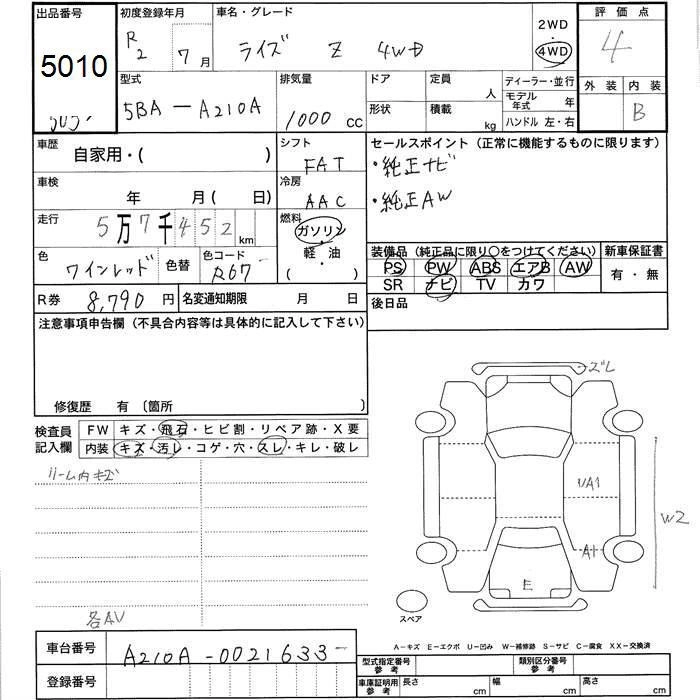 出品番号 初度登録年月 車名・グレード 2WD 評価点
5010 R2 7月 ライズ Z 4WD ・ 4WD 4
型式 排気量 ドア 定員 人 ディーラー・並行 外装 内装
5BA-A210A 1000cc 形状 積載 kg モデル年式 年 B
ハンドル 左・右
車歴 自家用・( ) シフト FAT セールスポイント(正常に機能するものに限ります)
・純正ナビ
車検 年 月( 日) 冷房 AAC ・純正AW
走行 5万7千452km 燃料 ガソリン
軽・油
( )
色 ワインレッド 色替 色コード R67 装備品(純正品に限り〇をつけてください) 新車保証書
PS PW ABS エアB AW 有・無
SR ナビ TV カワ
R券 8,790円 名変通知期限 月 日 後日品
注意事項申告欄(不具合内容等は具体的に記入して下さい)
修復歴 有〔箇所 〕
検査員記入欄 FW キズ・飛石・ヒビ割・リペア跡・X要
内装 キズ・汚レ・コゲ・穴・スレ・キレ・破レ
ルーム内キズ
各AU
ズレ
UA1
W2
A1
E
スペア
A-キズ E-エクボ U-凹み W-補修跡 S-サビ C-腐食 XX-交換済
車台番号 A210A-0021633-
登録番号
型式指定番号 参考 類別区分番号 参考
車庫証明用 参考 長さ cm 幅 cm 高さ cm